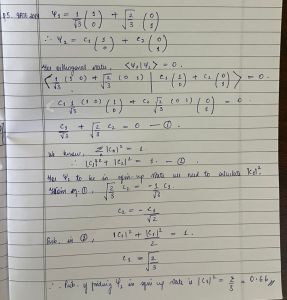 Ψ₁ = 1/√3 (1 0) + √2/√3 (0 1)
∴ Ψ₂ = c₁ (1 0) + c₂ (0 1)
orthogonal state, ⟨Ψ₁|Ψ₂⟩ = 0.
⟨1/√3 (1 0) + √2/√3 (0 1) | c₁ (1 0) + c₂ (0 1)⟩ = 0.
c₁ 1/√3 (1 0) (1 0) + c₂ √2/√3 (0 1) (0 1) = 0.
c₁/√3 + √2/√3 c₂ = 0 — ①.
We know, Σ|cₙ|² = 1.
∴ |c₁|² + |c₂|² = 1. — ②.
Ψ₂ to be in spin up state we need to calculate |c₁|²
From eq. ①, √2/√3 c₂ = -1/√3 c₁.
c₂ = -c₁/√2
Put in ②, |c₁|² + |c₁|²/2 = 1.
c₁ = √2/√3
∴ Prob. of finding Ψ₂ in spin up state is |c₁|² = 2/3 = 0.66 //